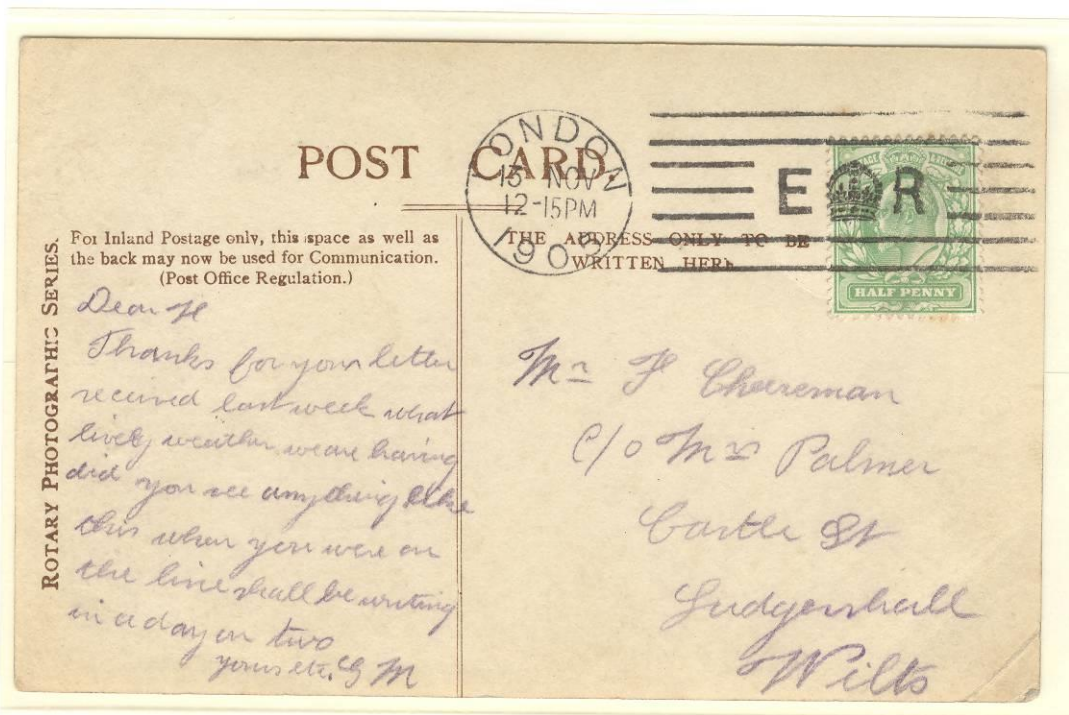 POST CARD.
LONDON
13 NOV
12-15PM
1903
E R
HALF PENNY
ROTARY PHOTOGRAPHIC SERIES.
For Inland Postage only, this space as well as
the back may now be used for Communication.
(Post Office Regulation.)
THE ADDRESS ONLY TO BE
WRITTEN HERE.
Dear H
Thanks for your letter
received last week what
lively weather we are having
did you see anything like
this when you were on
the line shall be writing
in a day or two
yours etc. G M
Mr H Cheeseman
C/o Mrs Palmer
Castle St
Ludgershall
Wilts